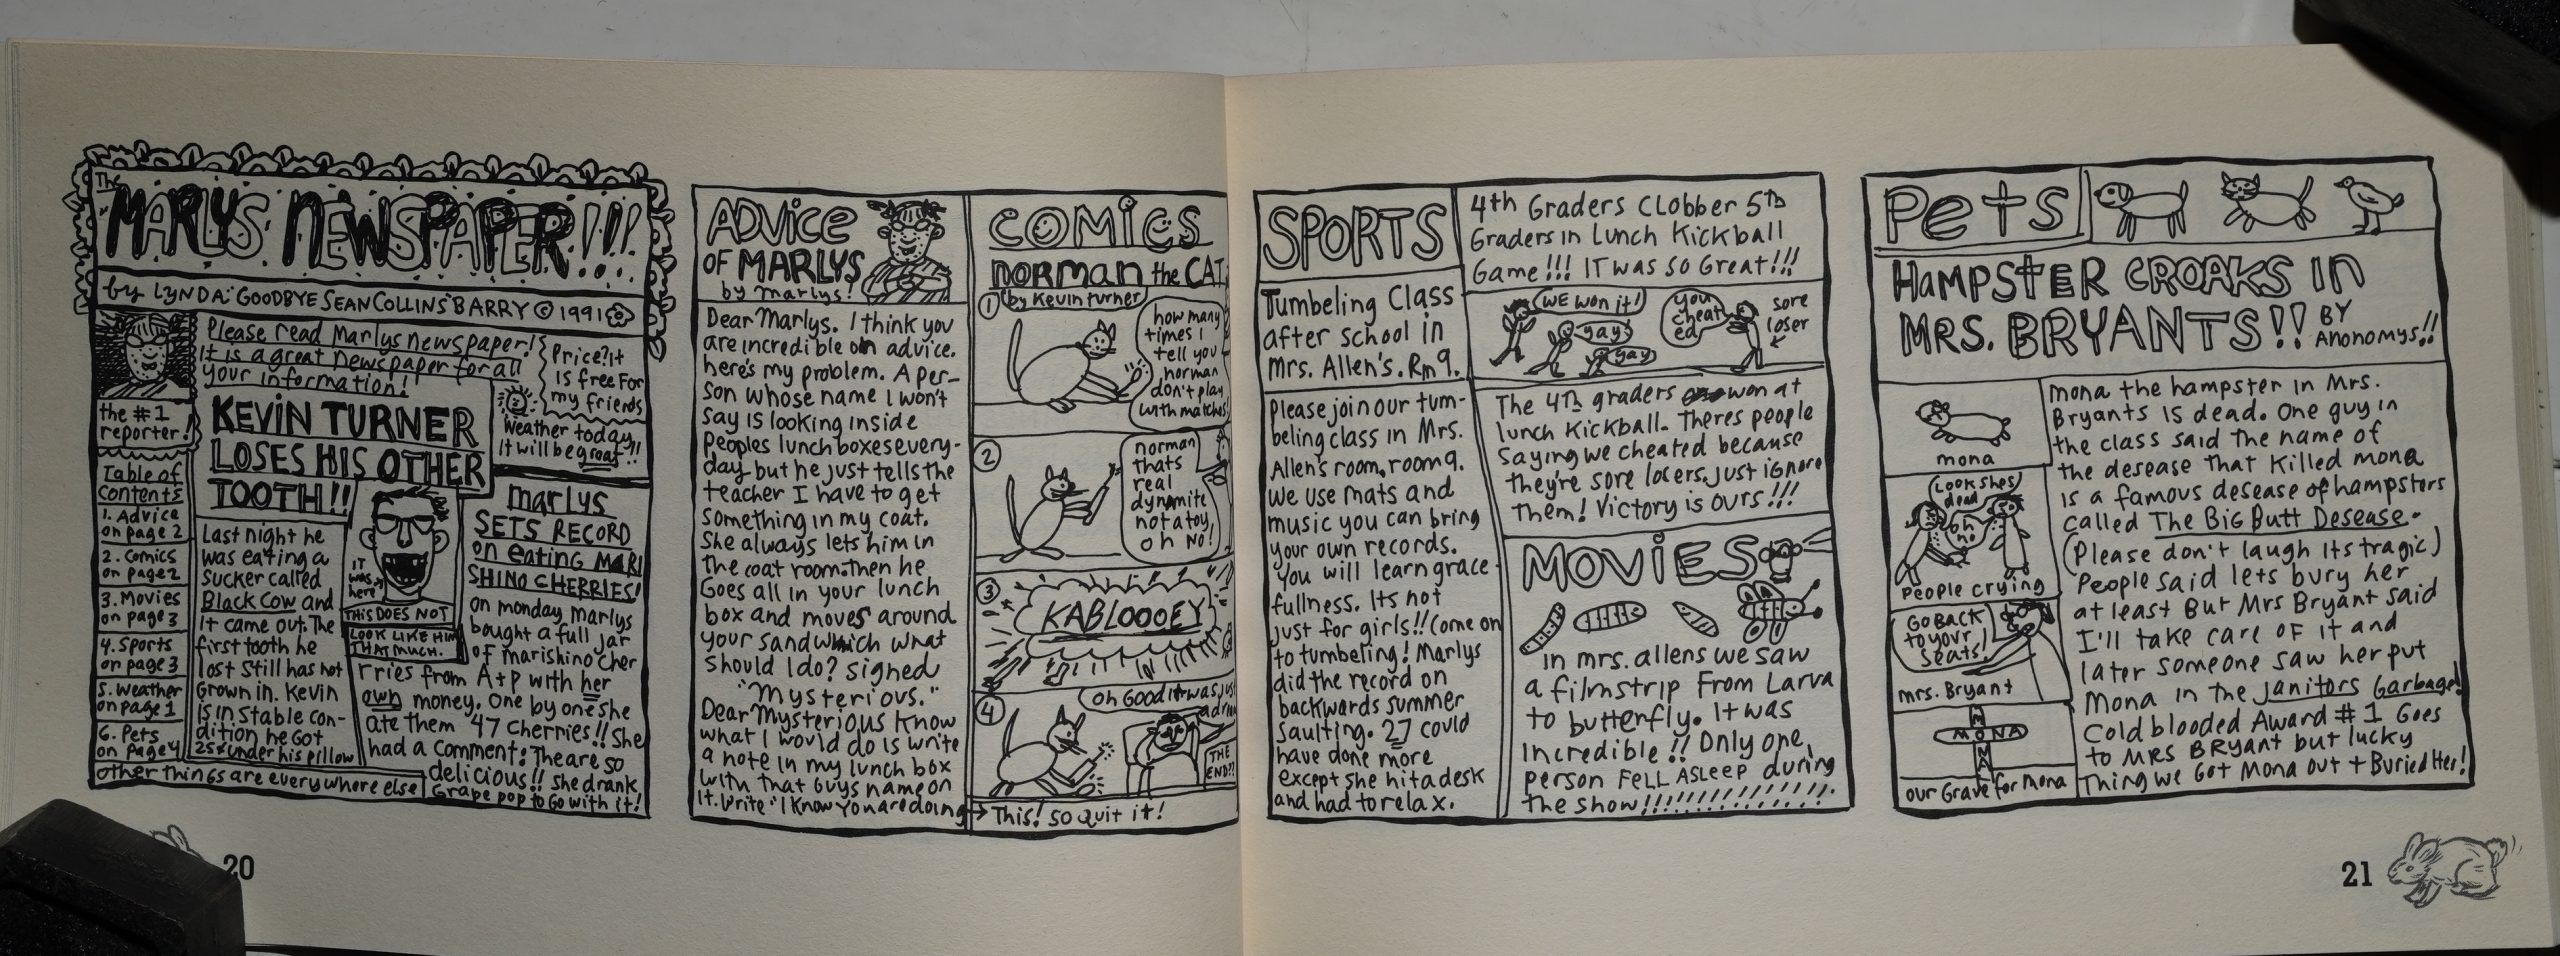 The
MARLYS NEWSPAPER!!!
by LYNDA "GOODBYE SEAN COLLINS" BARRY © 1991
the #1
reporter!
Please read Marlys newspaper!
It is a great newspaper for all
your information!
Price? It
is free For
my friends
weather today
It will be great!!
Table of
contents
1. Advice
on page 2
2. Comics
on page 2
3. Movies
on page 3
4. Sports
on page 3
5. Weather
on page 1
6. Pets
on Page 4
KEVIN TURNER
LOSES HIS OTHER
TOOTH!!
Last night he
was eating a
sucker called
Black Cow and
it came out. The
first tooth he
lost still has not
Grown in. Kevin
Is in stable con-
dition he Got
25¢ under his pillow
IT
was
here
THIS DOES NOT
LOOK LIKE HIM
THAT MUCH.
marlys
SETS RECORD
on eating MARI
SHINO CHERRIES!
on monday marlys
bought a full jar
of marishino cher
rries from A+P with her
own money. One by one she
ate them 47 Cherries!! She
had a comment: The are so
delicious!! She drank
Grape pop to Go with it!
other things are everywhere else
ADVICE
OF MARLYS
by marlys!
Dear Marlys. I think you
are incredible on advice.
here's my problem. A per-
son whose name I won't
say is looking inside
Peoples lunch boxes every-
day but he just tells the
teacher I have to get
something in my coat.
She always lets him in
the coat room. Then he
Goes all in your lunch
box and moves around
your sandwhich what
should I do? signed
"Mysterious."
Dear Mysterious Know
what I would do is write
a note in my lunch box
with that Guys name on
It. Write "I Know You are doing
→ This! So Quit it!
COMICS
NORMAN the CAT
by Kevin turner
1
how many
times I
tell you
norman
don't play
with matches
2
norman
thats
real
dynamite
not a toy,
oh NO!
3
KABLOOOEY
4
oh Good it was just
THE
END!!
SPORTS
Tumbeling Class
after school in
Mrs. Allen's. Rm 9.
Please join our tum-
beling class in Mrs.
Allen's room, room 9.
We use mats and
music you can bring
your own records.
You will learn grace-
fullness. Its not
just for girls!! Come on
to tumbeling! Marlys
did the record on
backwards summer
saulting. 27 could
have done more
except she hit a desk
and had to relax.
4th Graders Clobber 5Th
Graders in Lunch Kickball
Game!!! IT was so Great!!!
WE WON IT!
yay!
yay
you
cheat
ed
sore
loser
The 4Th graders won at
lunch Kickball. Theres people
saying we cheated because
they're sore losers, just ignore
Them! Victory is ours!!!
MOVIES
in mrs. allens we saw
a filmstrip From Larva
to butterfly. It was
Incredible!! Only one
person FELL ASLEEP during
the show!!!!!!!!!!!!!!!
Pets
HAMPSTER CROAKS IN
MRS. BRYANTS!!
BY
Anonomys!!
mona
Look shes
dead
oh
no
People crying
GO BACK
to your
seats!
mrs. Bryant
MONA
MONA
our Grave for mona
mona the hampster in Mrs.
Bryants is dead. One guy in
the class said the name of
the desease that Killed mona
is a famous desease of hampsters
called The Big Butt Desease.
(Please don't laugh Its tragic)
People said lets bury her
at least But Mrs Bryant said
I'll take care OF it and
later someone saw her put
Mona in the Janitors Garbage!
Cold blooded Award #1 Goes
to MRS BRyant but lucky
Thing we Got Mona out + Buried Her!
20
21